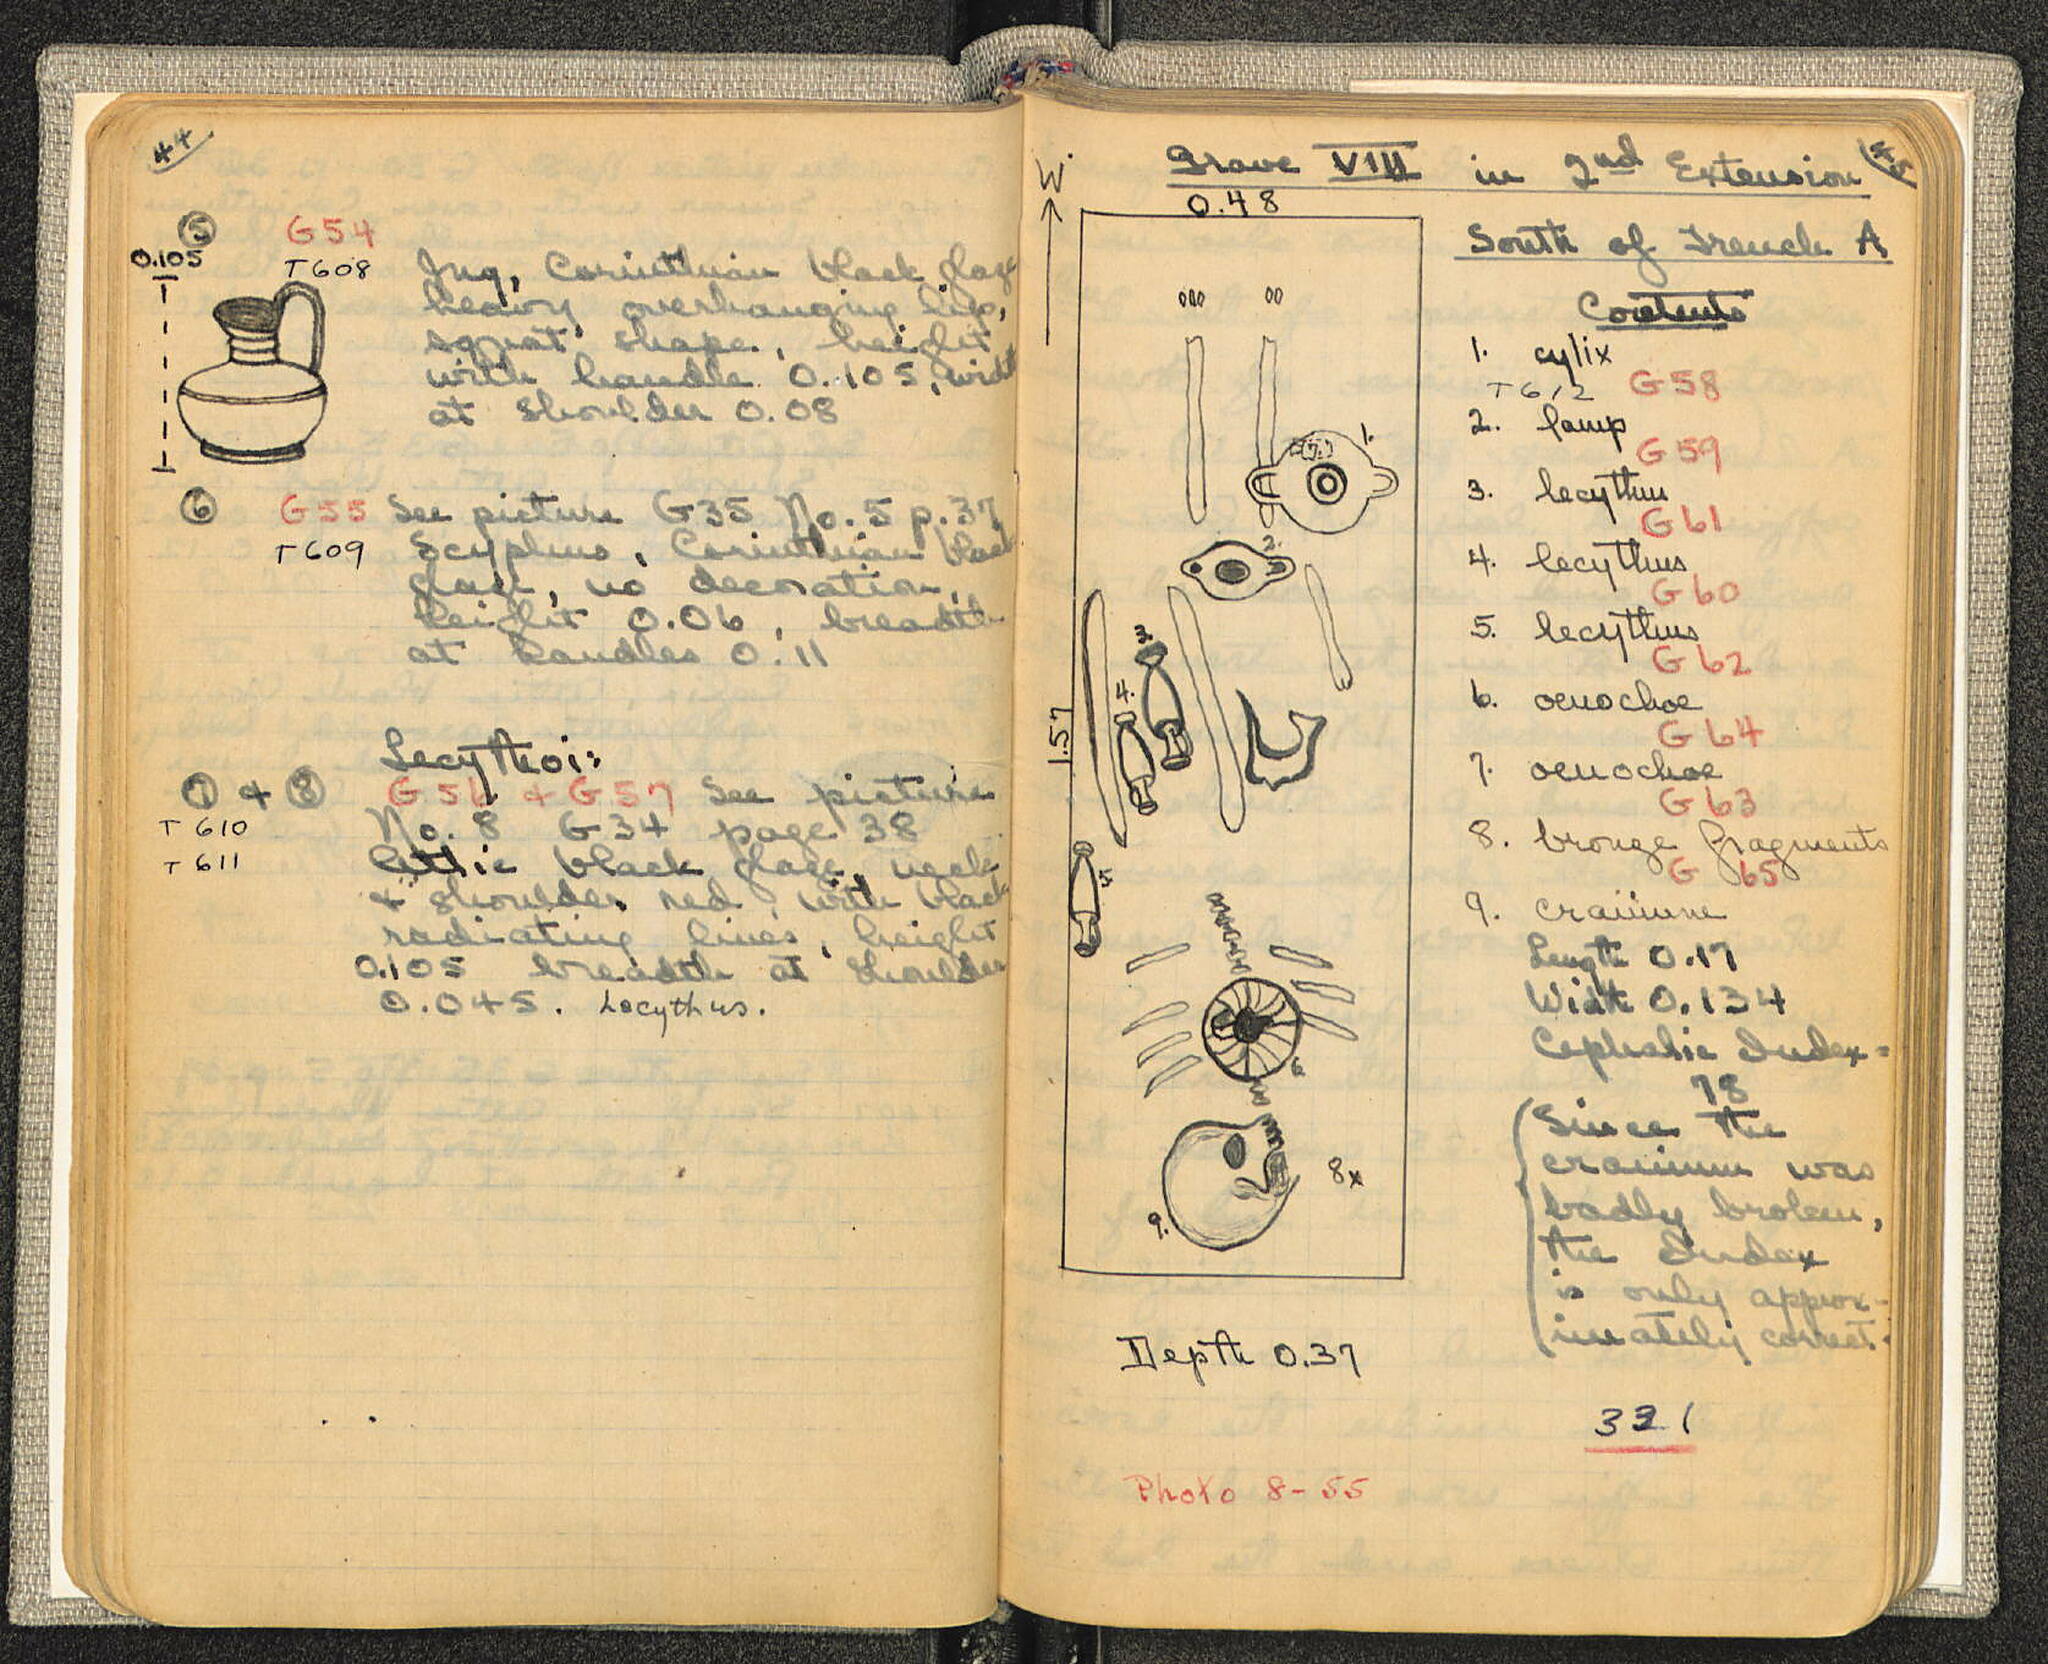 44
⑤ G54
0.105 T608 Jug, Corinthian black glaze
heavy, overhanging lip,
squat shape, height
with handle 0.105, width
at shoulder 0.08
⑥ G55 See picture G35 No. 5 p. 37
T609 Scyphus, Corinthian black
glaze, no decoration,
height 0.06, breadth
at handles 0.11
Lecythoi:
⑦ & ⑧ G56 & G57 See picture
T610 No. 8 G34 page 38
T611 Attic black glaze, neck
& shoulder red, with black
radiating lines, height
0.105 breadth at shoulder
0.045. Lecythus.
45
Grave VIII in 2nd Extension
South of Trench A
W.
0.48
1.57
1.
(7.)
2.
3.
4.
5.
6.
8x
9.
Depth 0.37
Photo 8-55
Contents
1. cylix
T612 G58
2. lamp
G59
3. lecythus
G61
4. lecythus
G60
5. lecythus
G62
6. oenochoe
G64
7. oenochoe
G63
8. bronze fragments
G 65
9. cranium
Length 0.17
Width 0.134
Cephalic Index =
78
Since the
cranium was
badly broken,
the Index
is only approx-
imately correct.
321